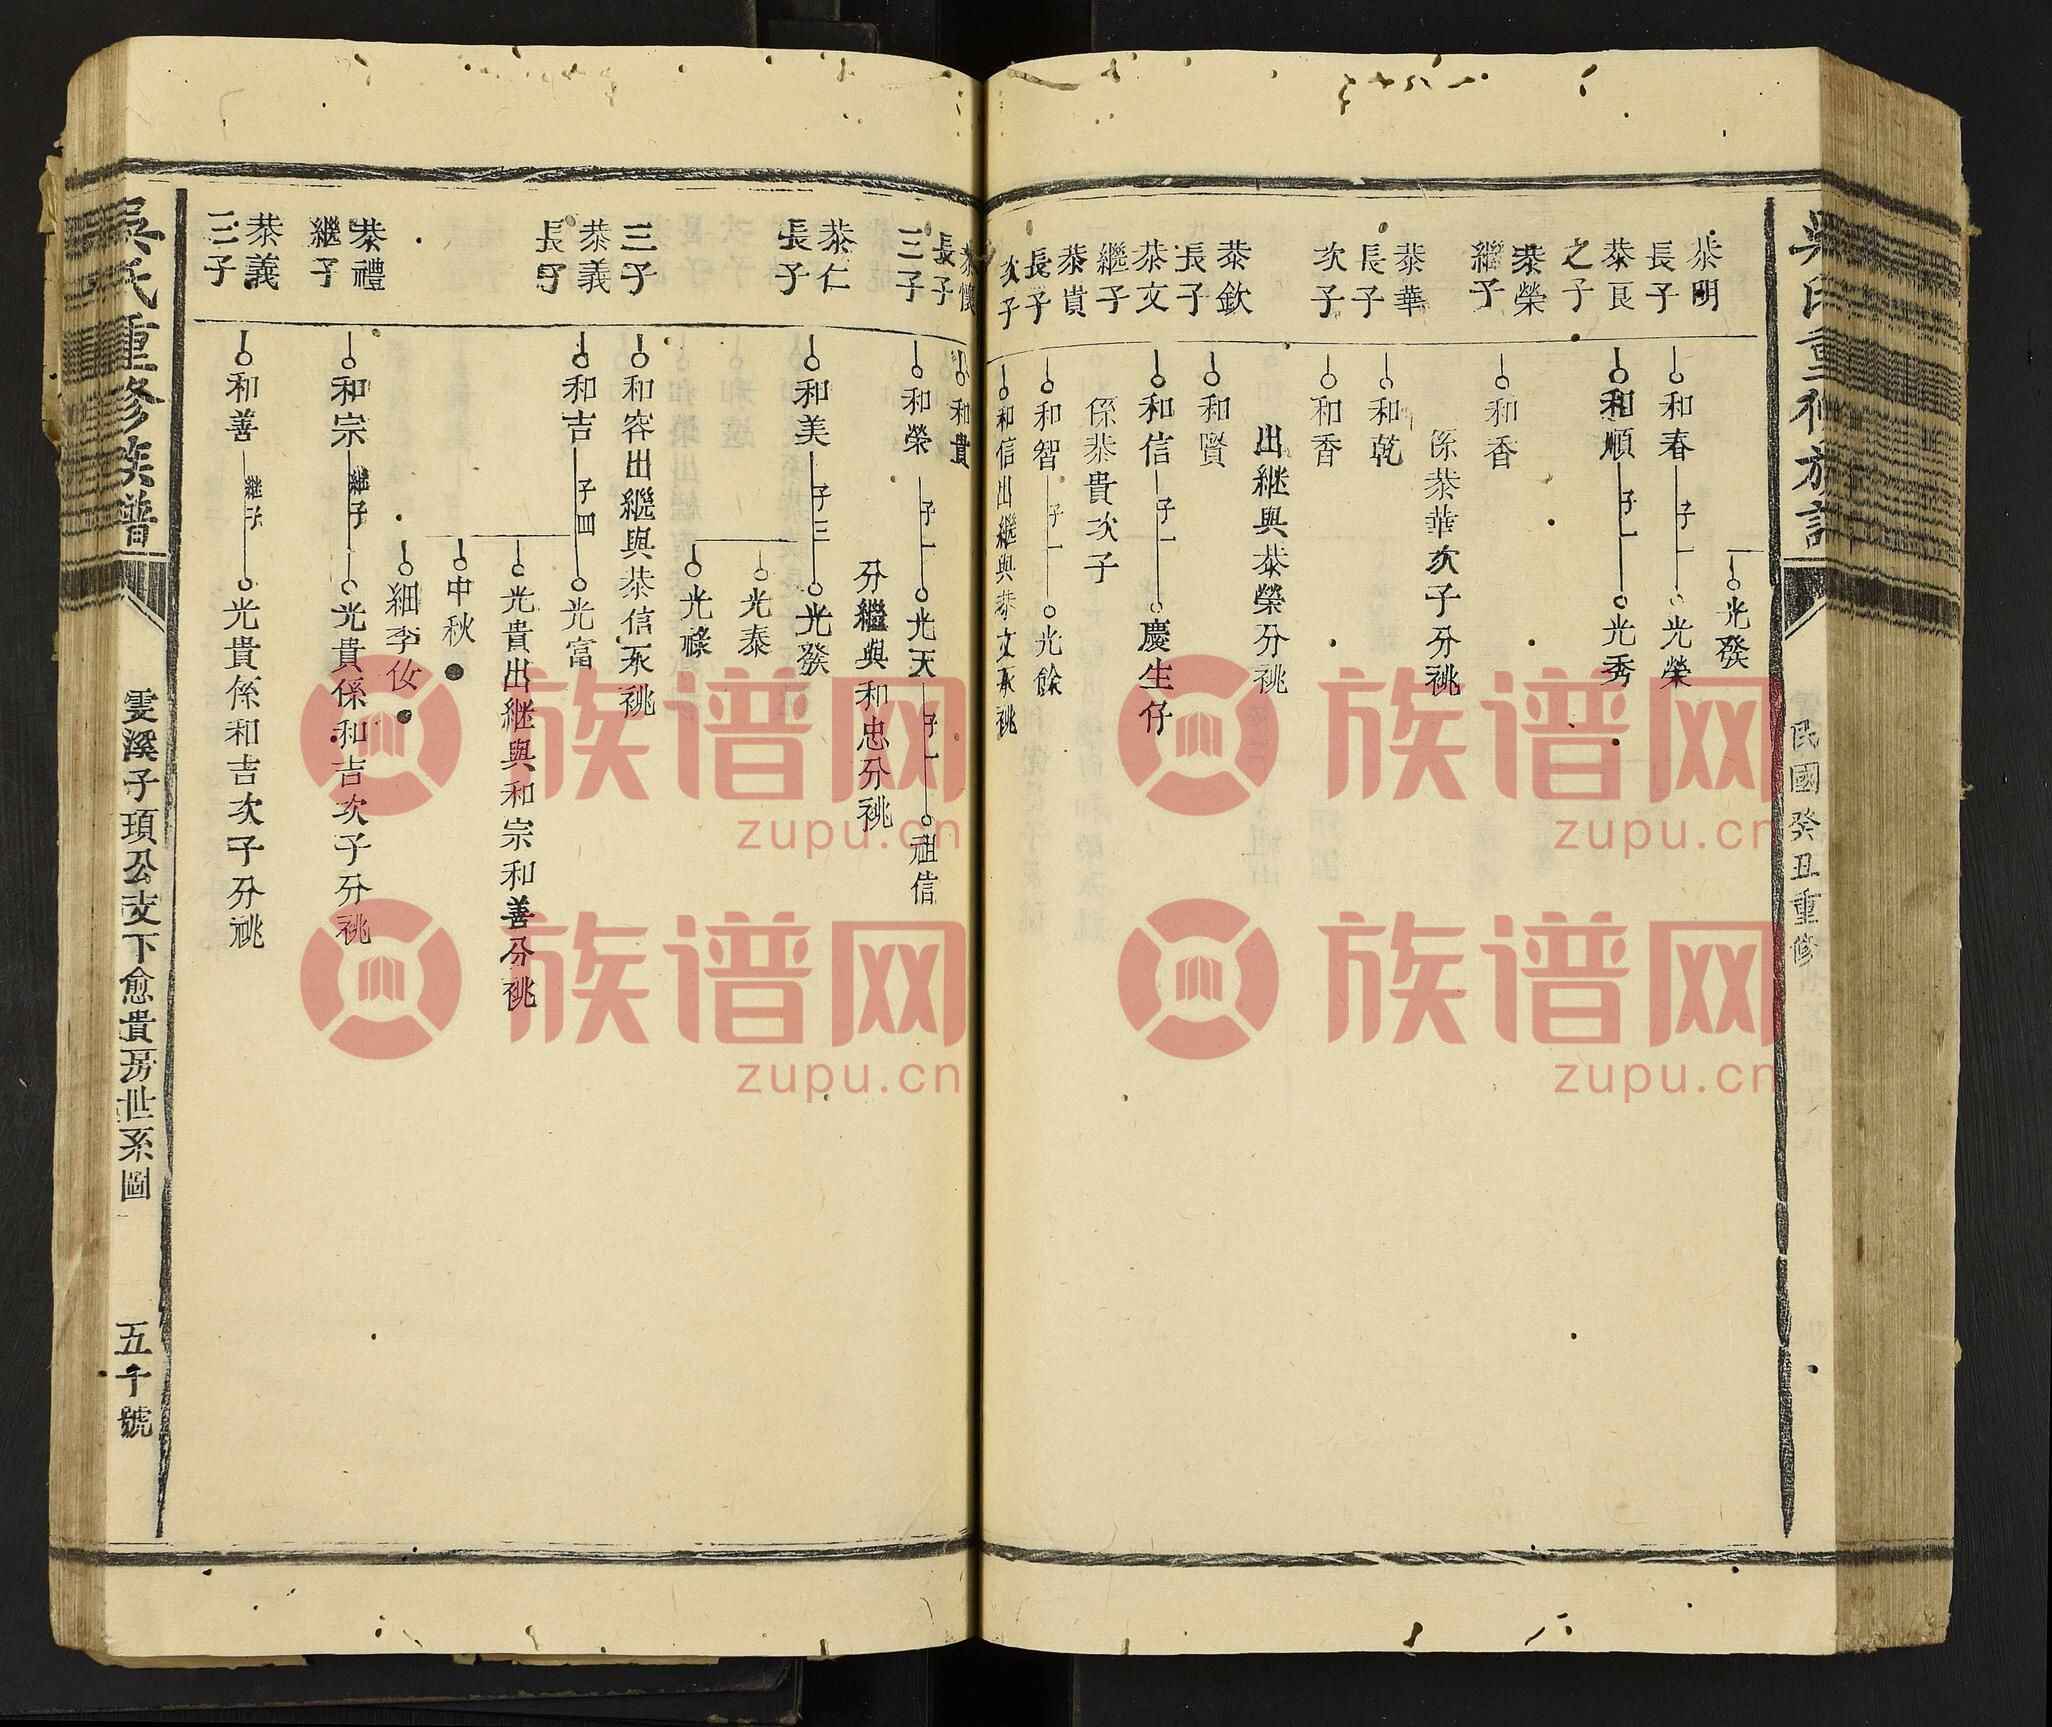 吳氏重修族譜
民國癸丑重修
光發
恭明長子
和春
子一
光榮
恭良之子
和順
子一
光秀
恭榮繼子
和香
係恭華次子分祧
恭華長子
和乾
次子
和香
出継與恭榮分祧
恭欽長子
和賢
恭文繼子
和信
子一
慶生仔
係恭貴次子
恭貴長子
和智
子一
光餘
次子
和信出繼與恭文承祧
長子
和貴
三子
和榮
子一
光天
子一
祖信
分繼與和忠分祧
恭仁長子
和美
子三
光發
光泰
光祿
三子
和容出繼與恭信承祧
恭義長子
和吉
子四
光富
光貴出継與和宗和善分祧
中秋
細李伩
恭禮繼子
和宗
継子
光貴係和吉次子分祧
恭義三子
和善
継子
光貴係和吉次子分祧
吳氏重修族譜
雯溪子頊公支下愈貴房世系圖
五千號
族谱网
zupu.cn
族谱网
zupu.cn
族谱网
zupu.cn
族谱网
zupu.cn